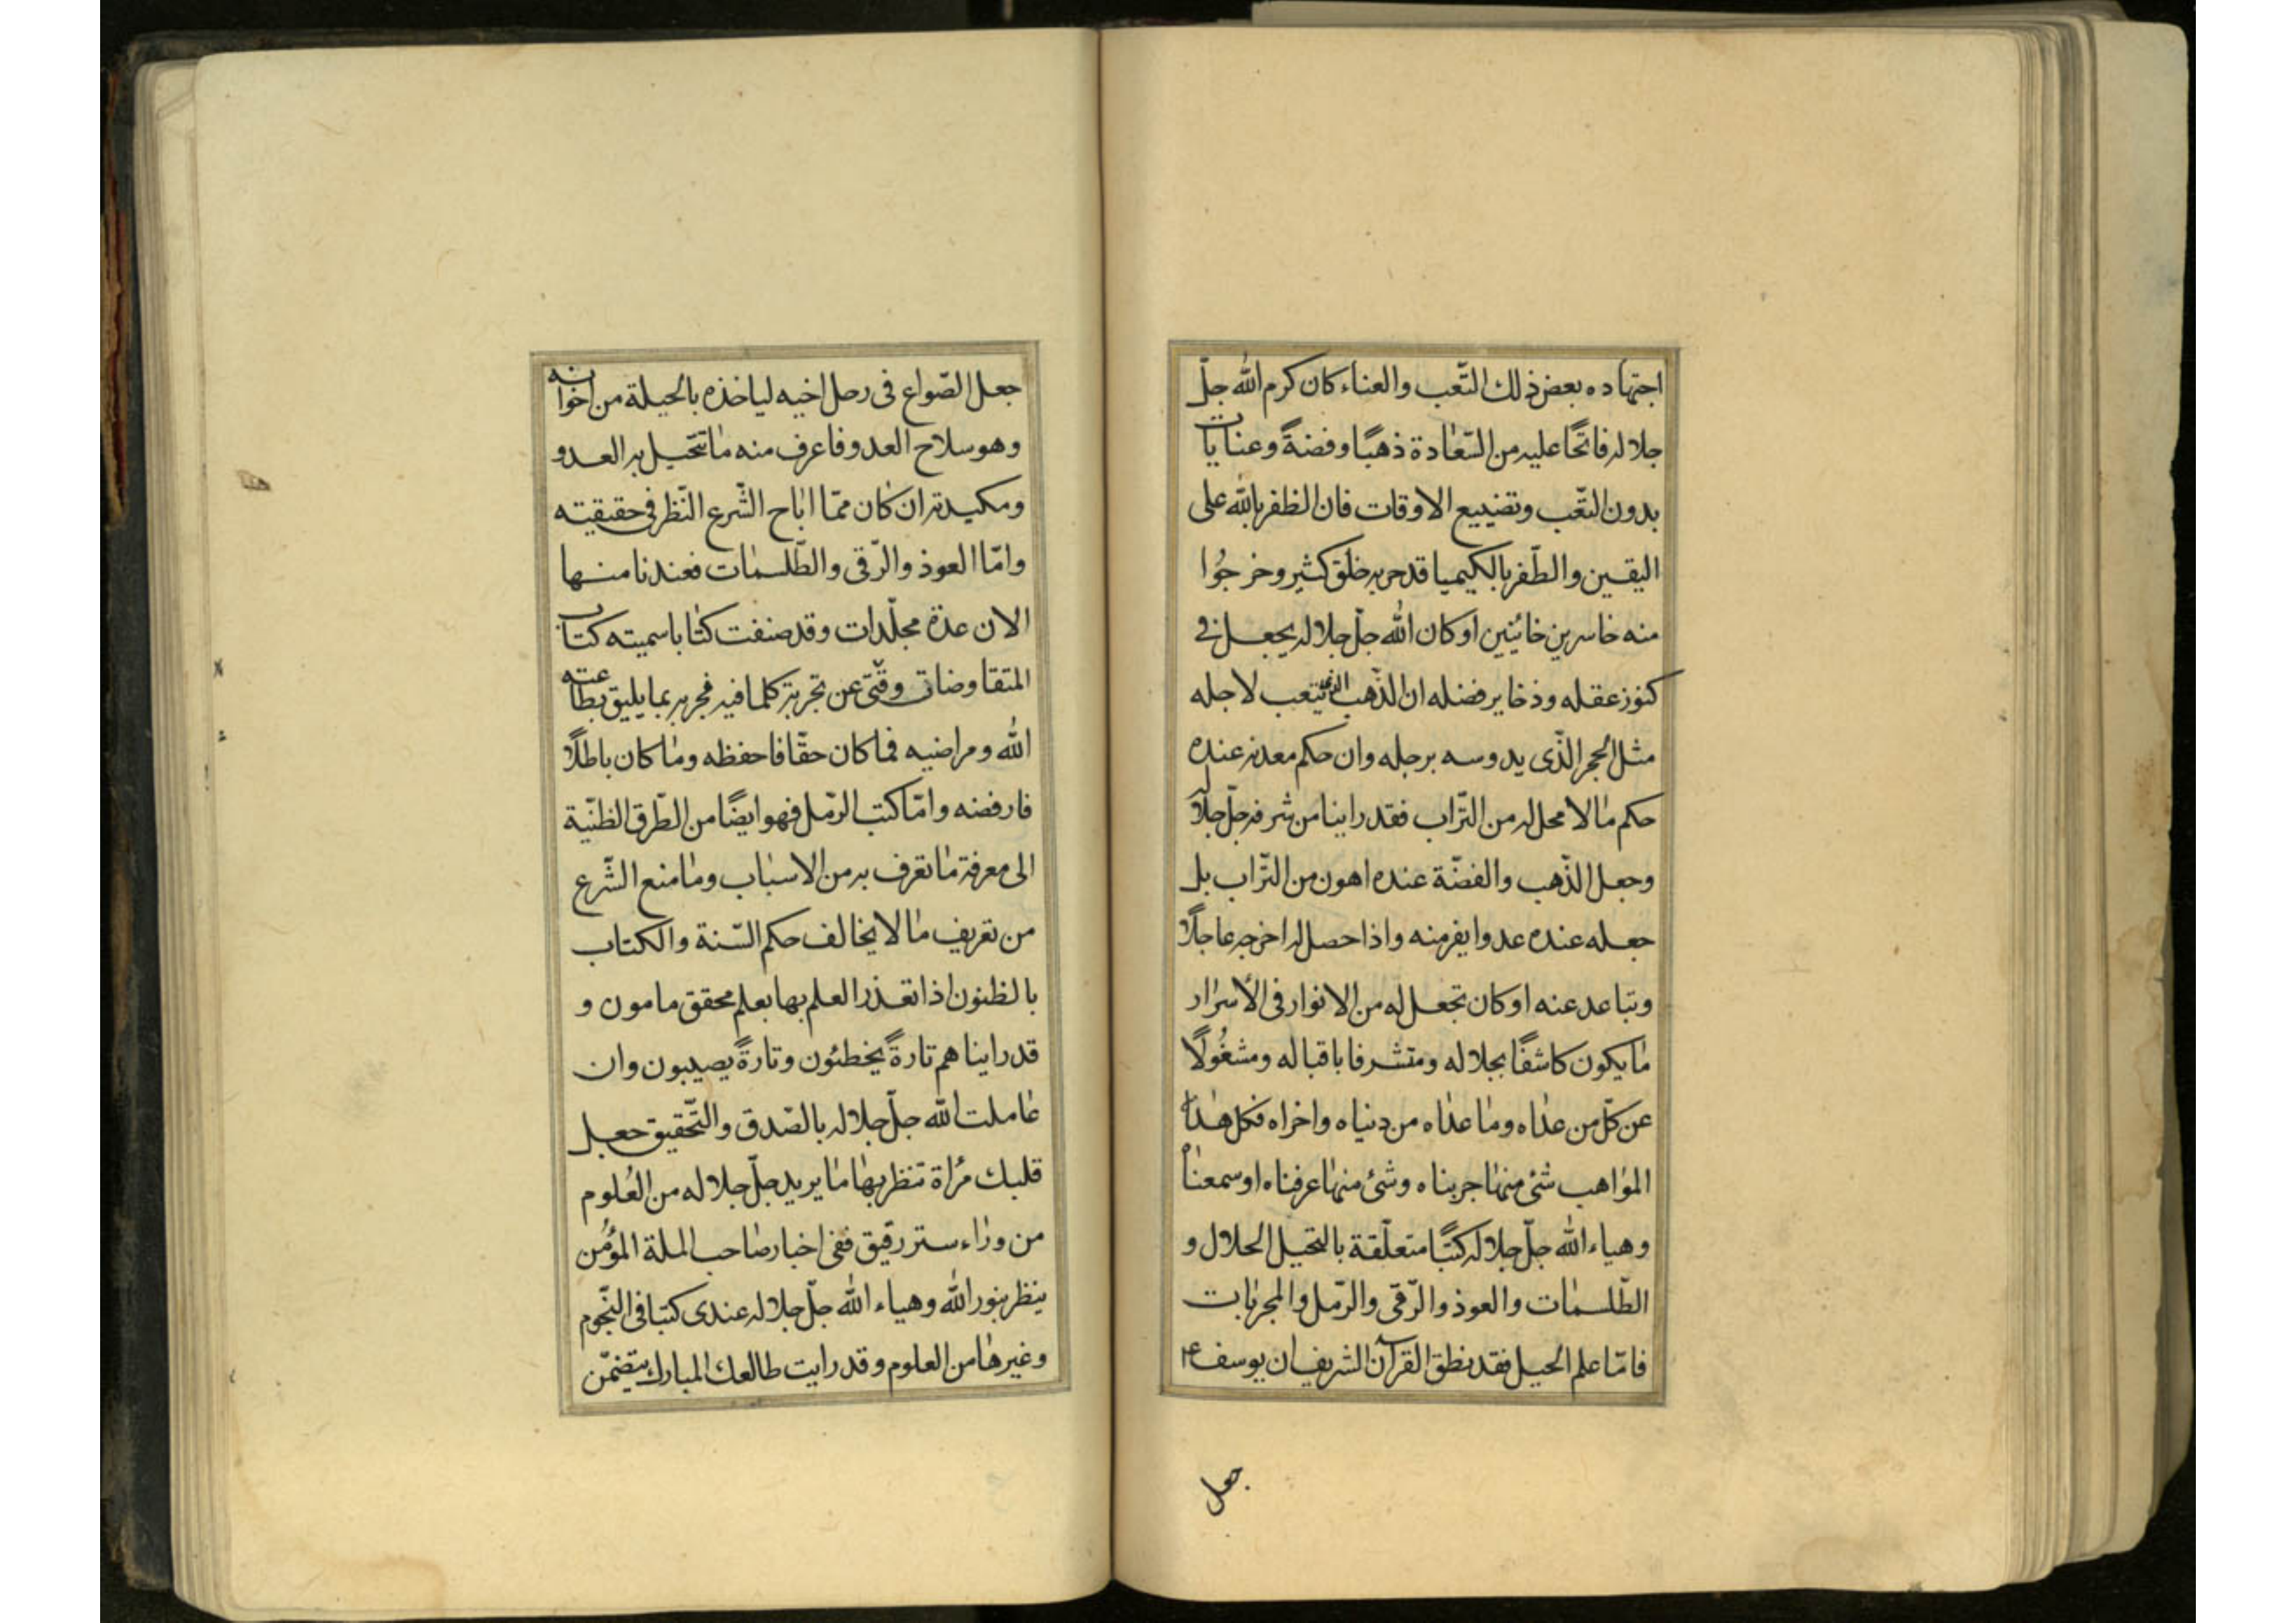 اجتهاده بعض ذلك التّعب والعناء كان كرم الله جلّ
جلاله فاتحًا عليه من السّعادة ذهبًا وفضةً وعنايات
بدون التّعب وتضييع الاوقات فان الظفر بالله على
اليقين والظّفر بالكيميا قد حربه خلق كثير وخرجُوا
منه خاسرين خائبين او كان الله جلّ جلاله يجعل في
كنوز عقله وذخاير فضله ان الذّهب الذى يتعب لاجله
مثل الحجر الّذى يدوسه برجله وان حكم معدنه عنده
حكم مالا محل له من التّراب فقد راينا من شرفه جلّ جلاله
وجعل الذّهب والفضّة عنده اهون من التّراب بل
جعله عنده عدوا يفر منه واذا حصل له اخرجه عاجلًا
وتباعد عنه او كان تجعل له من الانوار فى الأسرار
ما يكون كاشفًا بجلاله ومتشرفا باقباله ومشغُولًا
عن كلّ من عداه وما عداه من دنياه واخراه فكل هذا
المواهب شئ منها جربناه وشئ منها عرفناه او سمعناه
وهياء الله جلّ جلاله كتبًا متعلّقة بالتحيل الحلال و
الطّلسمات والعوذ والرّقى والرّمل والمجربات
فامّا علم الحيل فقد نطق القرآن الشريف ان يوسف ع
جعل
جعل الصّواع فى رحل اخيه لياخذه بالحيلة من اخوانه
وهو سلاح العدو فاعرف منه ما تتحيل به العدو
ومكيدته ان كان ممّا اباح الشّرع النّظر فى حقيقيته
وامّا العوذ والرّقى والطّلسمات فعندنا منها
الان عدة مجلّدات وقد صنفت كتابا سميته كتاب
المتقاوضات وقتى عن تجربة كلما فيه فجربه بما يليق بطاعته
الله ومراضيه فما كان حقّا فاحفظه وما كان باطلًا
فارفضه وامّا كتب الرّمل فهو ايضًا من الطّرق الظنّية
الى معرفة ما تعرف به من الاسباب وما منع الشّرع
من تعريف ما لا يخالف حكم السّنة والكتاب
بالظنون اذا تعذر العلم بها بعلم محقق مامون و
قد راينا هم تارةً يخطئون وتارةً يصيبون وان
عاملت الله جلّ جلاله بالصّدق والتّحقيق جعل
قلبك مُراة تنظر بها ما يريد جلّ جلاله من العُلوم
من وراء ستر رقيق ففى اخبار صاحب الملة المؤمن
ينظر بنور الله وهياء الله جلّ جلاله عندى كتبا فى النّجوم
وغيرها من العلوم وقد رايت طالعك المبارك يتضمّن